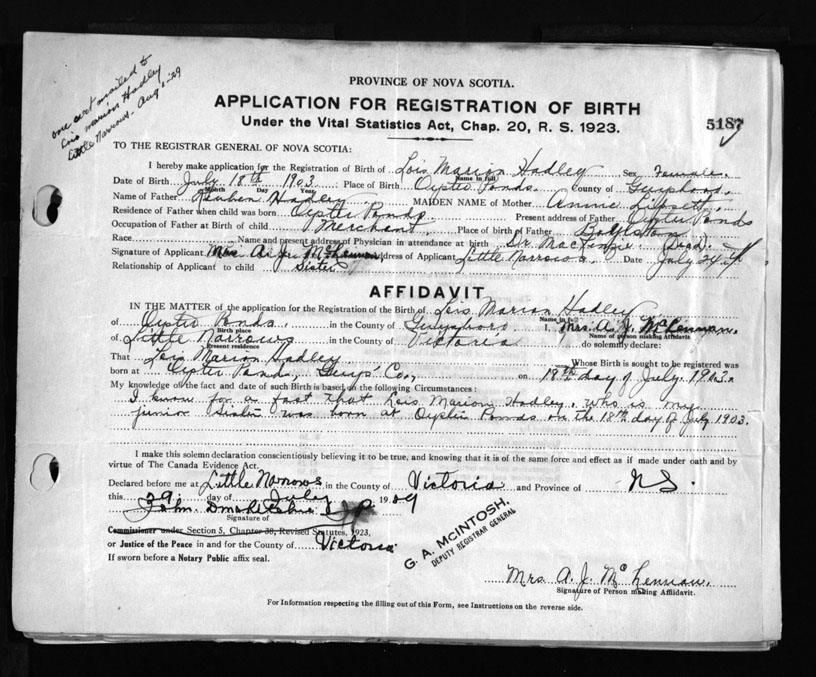 one cert mailed to
Lois Marion Hadley
Little Narrows - Aug 1-29
PROVINCE OF NOVA SCOTIA.
APPLICATION FOR REGISTRATION OF BIRTH
Under the Vital Statistics Act, Chap. 20, R. S. 1923.
5187
TO THE REGISTRAR GENERAL OF NOVA SCOTIA:
I hereby make application for the Registration of Birth of Lois Marion Hadley Sex Female
Name in full
Date of Birth July 18th 1903 Place of Birth Oyster Ponds County of
Month Day Year
Name of Father Reuben Hadley MAIDEN NAME of Mother Annie Lipsett
Residence of Father when child was born Oyster Ponds Present address of Father Oyster Ponds
Occupation of Father at Birth of child Merchant Place of birth of Father Boylston
Race Name and present address of Physician in attendance at birth Dr MacKenzie (Dead)
Signature of Applicant Mrs A. J. McLennan Address of Applicant Little Narrows Date July 24
Relationship of Applicant to child Sister
AFFIDAVIT
IN THE MATTER of the application for the Registration of the Birth of Lois Marion Hadley
Name in full
of Oyster Ponds in the County of Guysboro I, Mrs. A. J. McLennan.
Birth place Name of person making Affidavit
of Little Narrows in the County of Victoria do solemnly declare:
Present residence
That Lois Marion Hadley Whose Birth is sought to be registered was
born at Oyster Ponds, Guys' Co., on 18th day of July. 1903.
My knowledge of the fact and date of such Birth is based on the following Circumstances:
I know for a fact that Lois Marion Hadley, who is my
junior Sister was born at Oyster Ponds on the 18th day of July 1903.
I make this solemn declaration conscientiously believing it to be true, and knowing that it is of the same force and effect as if made under oath and by
virtue of The Canada Evidence Act.
Declared before me at Little Narrows in the County of Victoria and Province of N S.
this 29 day of July 1929
John J P.
Signature of
Commissioner under Section 5, Chapter 38, Revised Statutes, 1923,
or Justice of the Peace in and for the County of Victoria
If sworn before a Notary Public affix seal.
G. A. McINTOSH.
DEPUTY REGISTRAR GENERAL
Mrs A. J. McLennan.
Signature of Person making Affidavit.
For Information respecting the filling out of this Form, see Instructions on the reverse side.